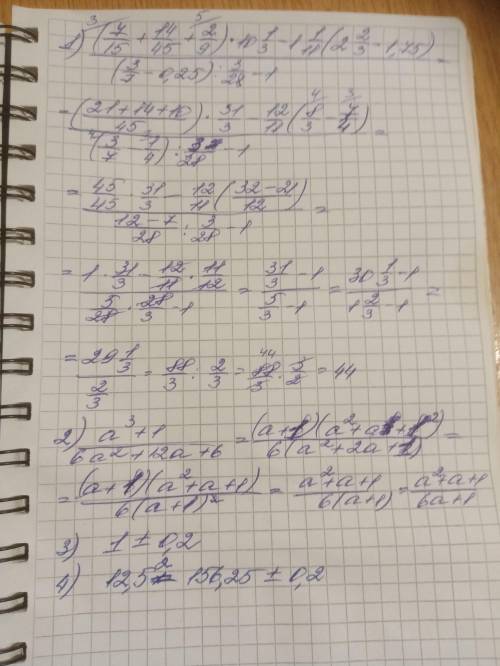 1) ((7/15 + 14/45 + 2/9) · 10 1/3 − 1 1/11 (2 2/3 − 1,75)) / ((3/7 − 0,25) : 3/28 − 1) =
= (((21+14+10)/45) · 31/3 − 12/11 (8/3 − 7/4)) / ((3/7 − 1/4) : 3/28 − 1) =
= (45/45 · 31/3 − 12/11 ((32−21)/12)) / ((12−7)/28 : 3/28 − 1) =
= (1 · 31/3 − 12/11 · 11/12) / (5/28 · 28/3 − 1) = (31/3 − 1) / (5/3 − 1) = (30 1/3 − 1) / (1 2/3 − 1) =
= (29 1/3) / (2/3) = 88/3 : 2/3 = 88/3 · 3/2 = 44
2) (a³+1) / (6a²+12a+6) = ((a+1)(a²+a1+1²)) / (6(a²+2a+1)) =
= ((a+1)(a²+a+1)) / (6(a+1)²) = (a²+a+1) / (6(a+1)) = (a²+a+1) / (6a+1)
3) 1 ± 0,2
4) 12,5² = 156,25 ± 0,2